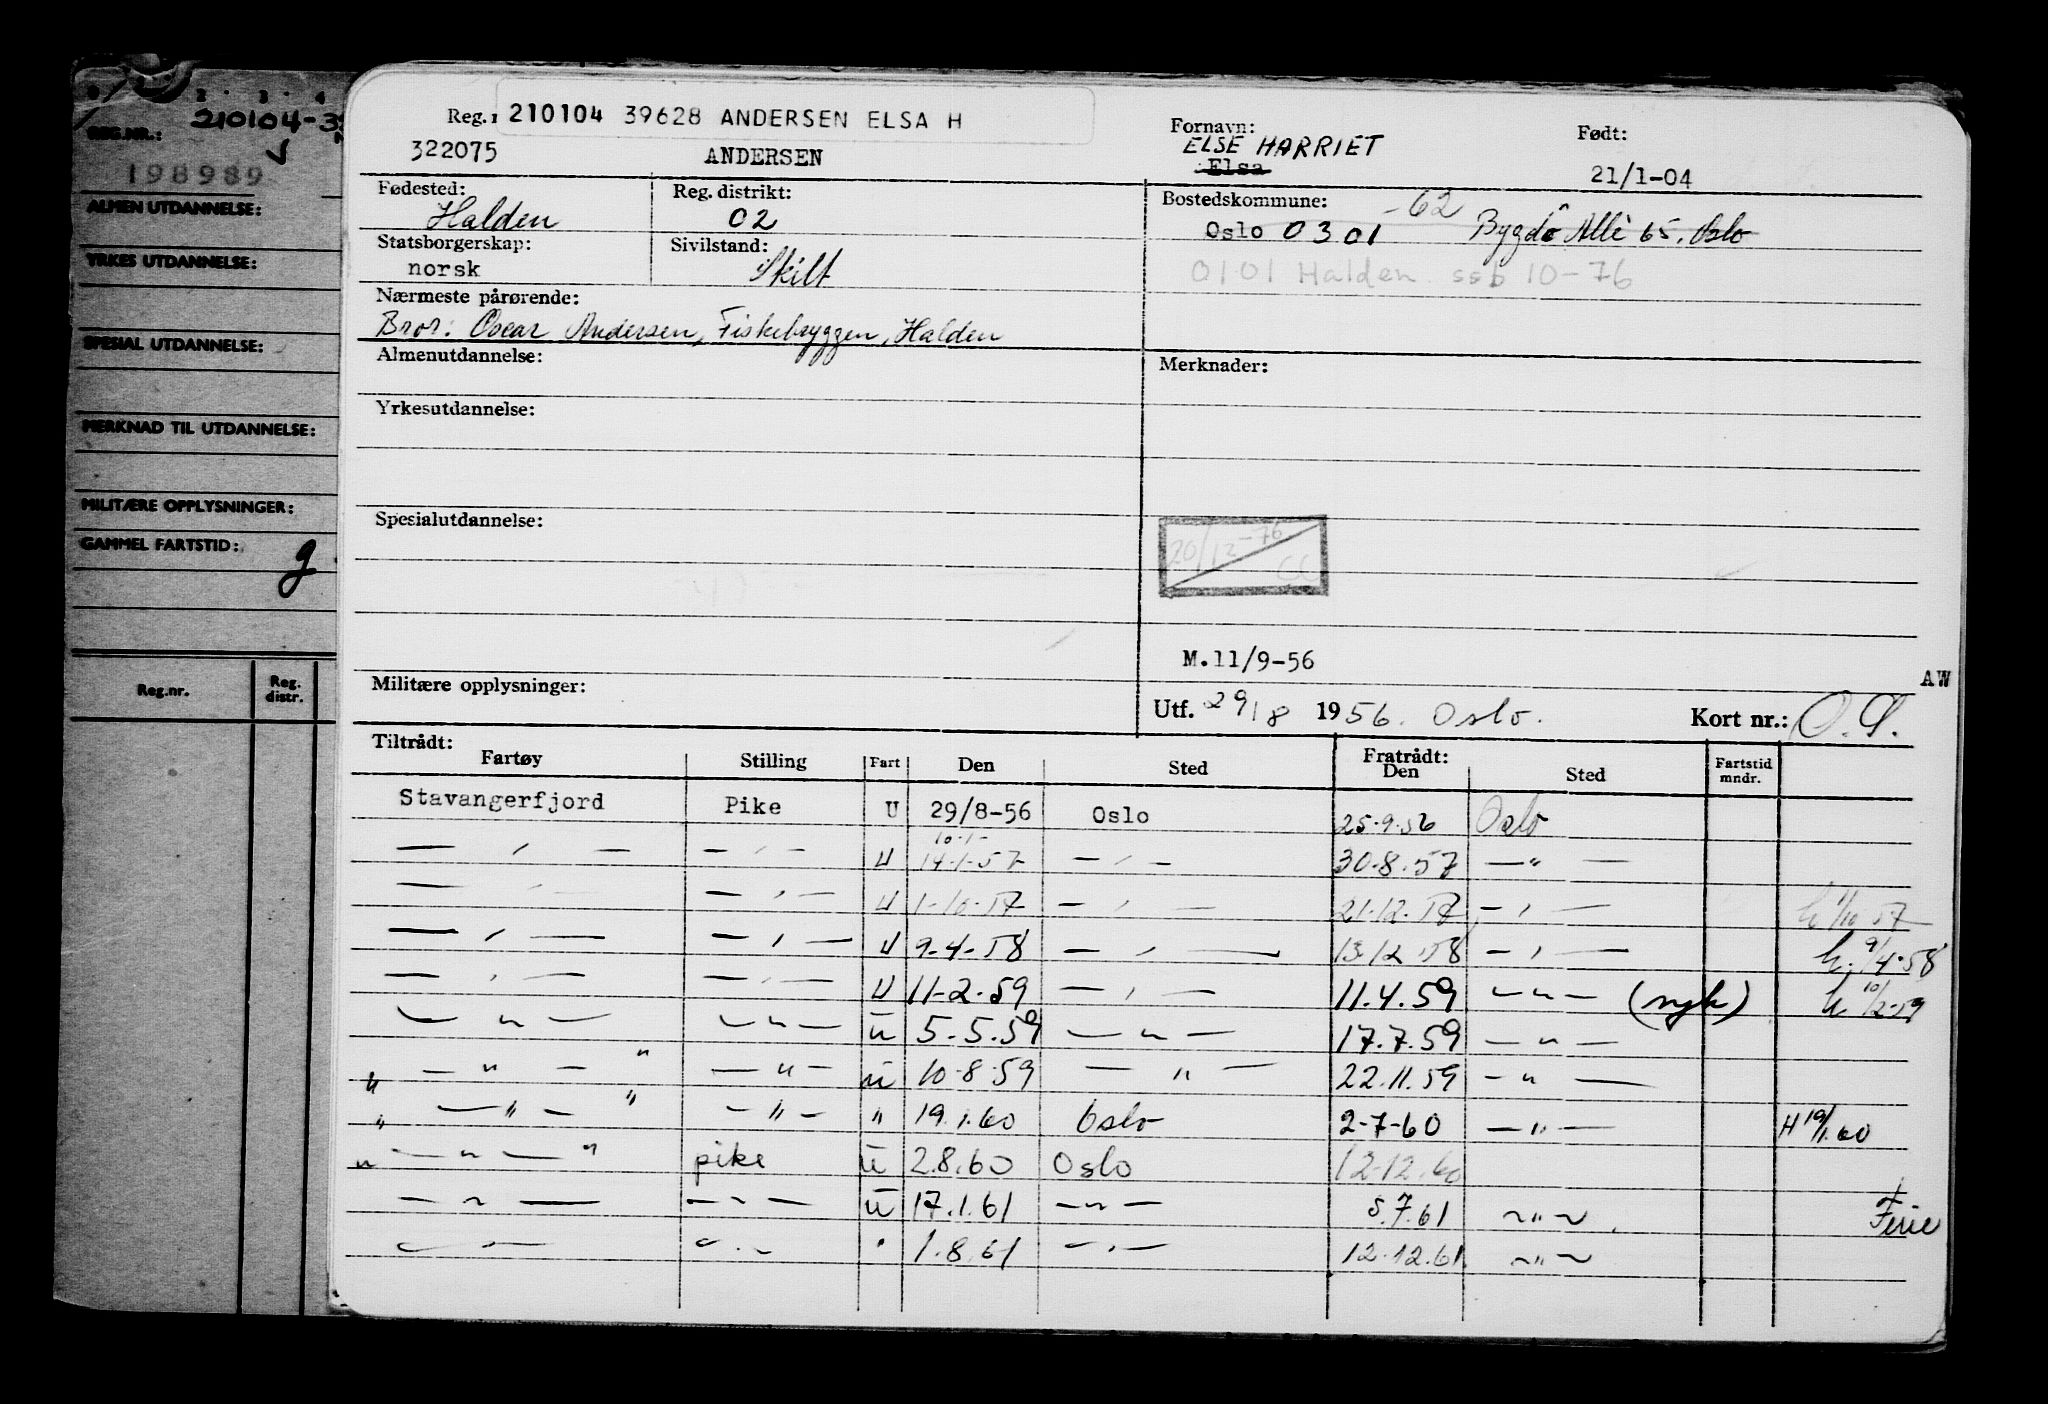 2 · 3 · 4
REG.NR.: 210104-39
198989
ALMEN UTDANNELSE:
YRKES UTDANNELSE:
SPESIAL UTDANNELSE:
MERKNAD TIL UTDANNELSE:
MILITÆRE OPPLYSNINGER:
GAMMEL FARTSTID: g
Reg.nr. Reg. distr.
Reg. 210104 39628 ANDERSEN ELSA H Fornavn: Født:
322075 ANDERSEN ELSE HARRIET 21/1-04
Elsa
Fødested: Reg. distrikt: Bostedskommune: -62
Halden 02 Oslo 0301 Bygdö Allè 65, Oslo
Statsborgerskap: Sivilstand: 0101 Halden ssb 10-76
norsk Skilt
Nærmeste pårørende:
Bror: Oscar Andersen, Fiskebryggen, Halden
Almenutdannelse: Merknader:
Yrkesutdannelse:
Spesialutdannelse:
20/12-76 CC
M.11/9-56
AW
Militære opplysninger: Utf. 29/8 1956. Oslo. Kort nr.: O.S.
Tiltrådt: Fratrådt:
Fartøy Stilling Fart Den Sted Den Sted Fartstid mndr.
Stavangerfjord Pike U 29/8-56 Oslo 25.9.56 Oslo
10-1-
— , — — , — U 14-1-57 — , — 30.8.57 — " —
— , — — , — U 1-10-57 — , — 21.12.57 — , — h 1/10 57
— , — — , — U 9-4-58 — , — 13.12.58 — , — h. 9/4-58
— , — — , — U 11-2-59 — , — 11.4.59 — " — (syk) h 10/2-59
— " — — " — u 5.5.59 — " — 17.7.59 — " —
" — " — " — " — u 10-8-59 — " — 22.11.59 — " —
" — " — " — " — " 19.1.60 Oslo 2-7-60 — " — H 19/1.60
" — " — " pike u 2.8.60 Oslo 12-12.60
— " — — " — u 17.1.61 — " — 5.7.61 — " — Ferie
— " — — " — " 1.8.61 — " — 12.12.61 — " —